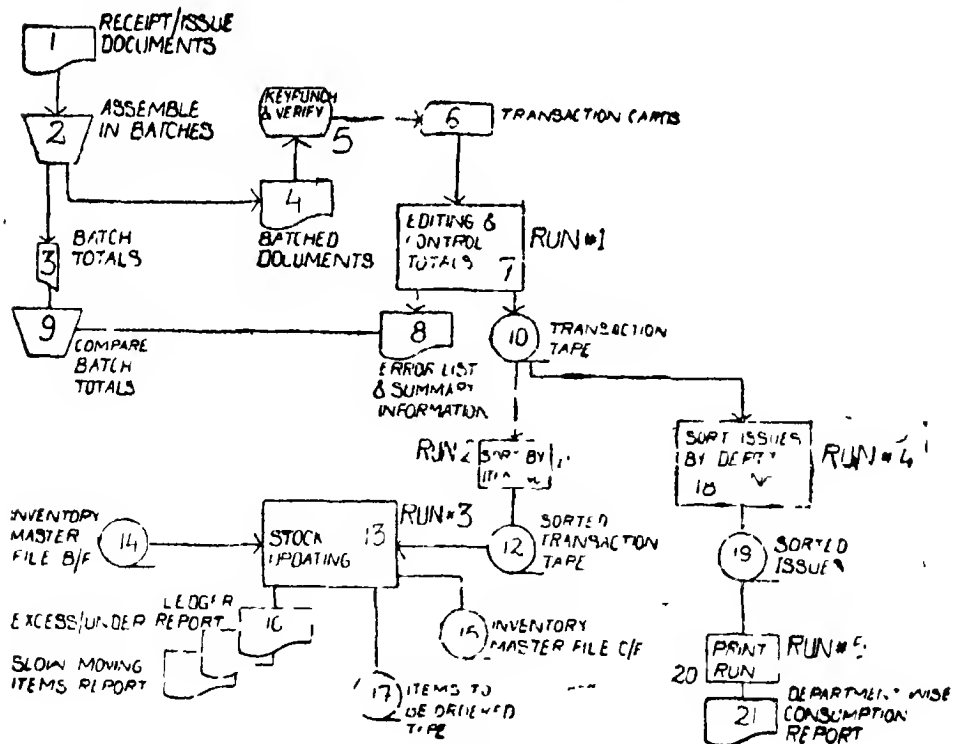 1
RECEIPT/ISSUE
DOCUMENTS
2
ASSEMBLE
IN BATCHES
KEYPUNCH
& VERIFY
5
6
TRANSACTION CARDS
3
BATCH
TOTALS
4
BATCHED
DOCUMENTS
EDITING &
CONTROL
TOTALS
7
RUN #1
9
COMPARE
BATCH
TOTALS
8
ERROR LIST
& SUMMARY
INFORMATION
10
TRANSACTION
TAPE
RUN 2
SORT BY
ITEM
SORT ISSUES
BY DEPTT
18
RUN #4
INVENTORY
MASTER
FILE B/F
14
STOCK
UPDATING
13
RUN #3
12
SORTED
TRANSACTION
TAPE
19
SORTED
ISSUES
LEDGER
REPORT
16
EXCESS/UNDER
SLOW MOVING
ITEMS REPORT
15
INVENTORY
MASTER FILE C/F
17
ITEMS TO
BE ORDERED
TAPE
PRINT
RUN
20
RUN #5
21
DEPARTMENT WISE
CONSUMPTION
REPORT